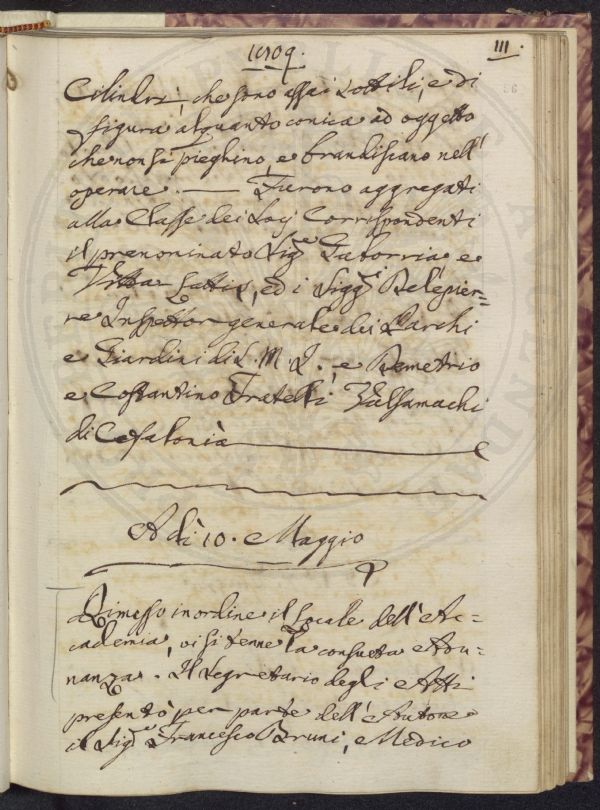 1809.
111.
Cilindri, che sono assai sottili, e di
figura alquanto conica ad oggetto
che non si pieghino, e brandiscano nell'
operare. — Furono aggregati
alla Classe dei Socj Corrispondenti
il prenominato Sig.e Gaborria e
Vitta Sattis, ed i Sigg.i Belépier=
re Inspettor generale dei Parchi
e Giardini di S. M. I. e Demetrio
e Costantino Fratelli Valsamachi
di Cefalonia
Adì 10. Maggio
Rimesso in ordine il locale dell'Ac=
cademia, vi si tenne la consueta Adu=
nanza. Il Segretario degli Atti
presentò per parte dell'Autore
il Sig.e Francesco Bruni, Medico